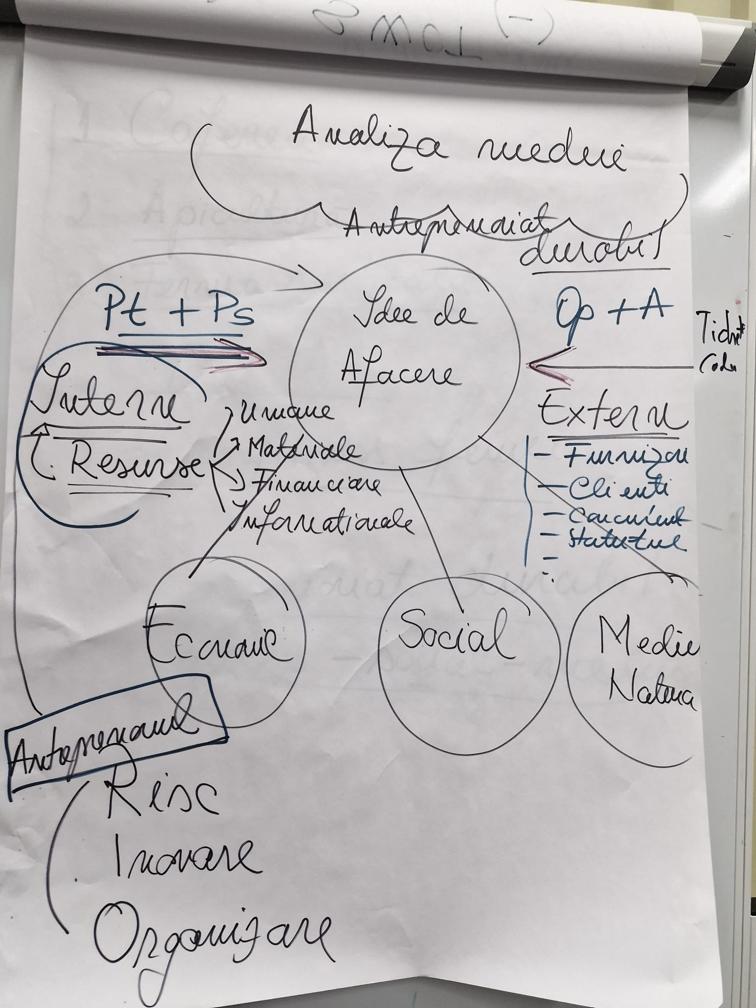 (-)
TOWS
Analiza mediu
Antreprenoriat
durabil
Pt + Ps
Idee de
Afacere
Op + A
Intern
Resurse
Umane
Materiale
Financiare
Informationale
Extern
- Furnizori
- Clienti
- Concurent
- Statutul
-
Economic
Social
Mediu
Natura
Antreprenorul
Risc
Inovare
Organizare